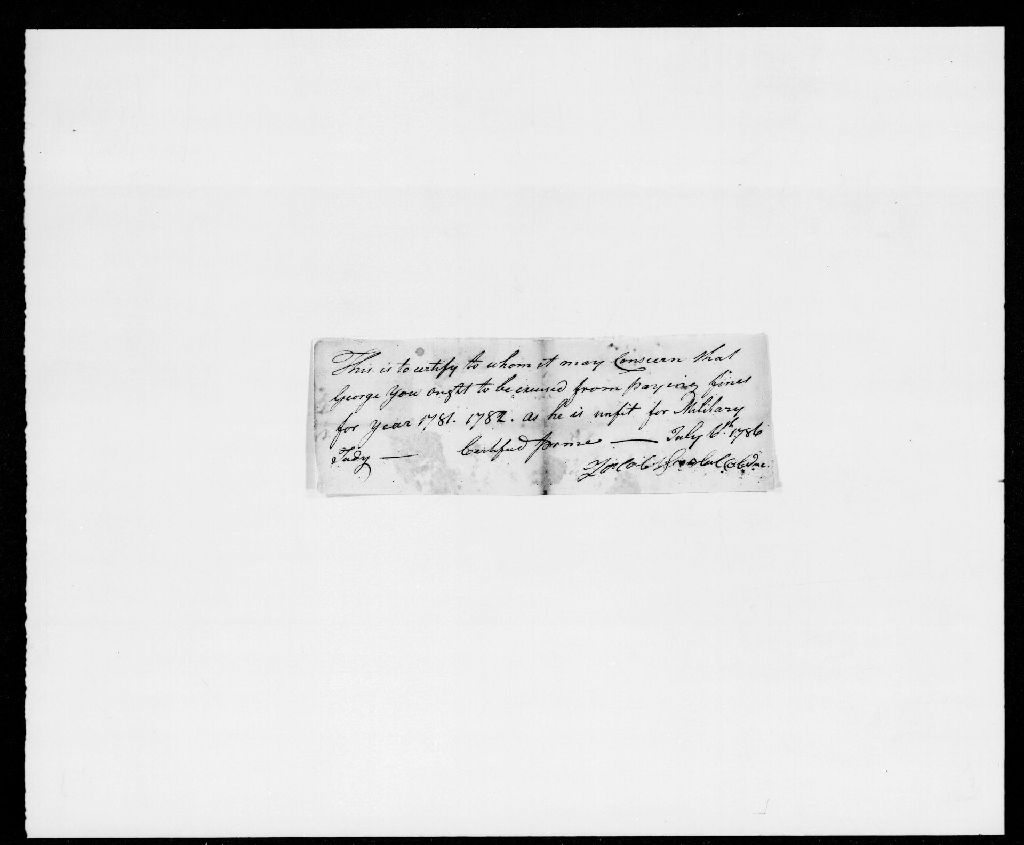 This is to certify to whom it may Conscern that
George You ought to be excused from paying fines
for year 1781. 1782. as he is unfit for Military
Tudy — Certifued pr me — July 6th. 1786
Jacob